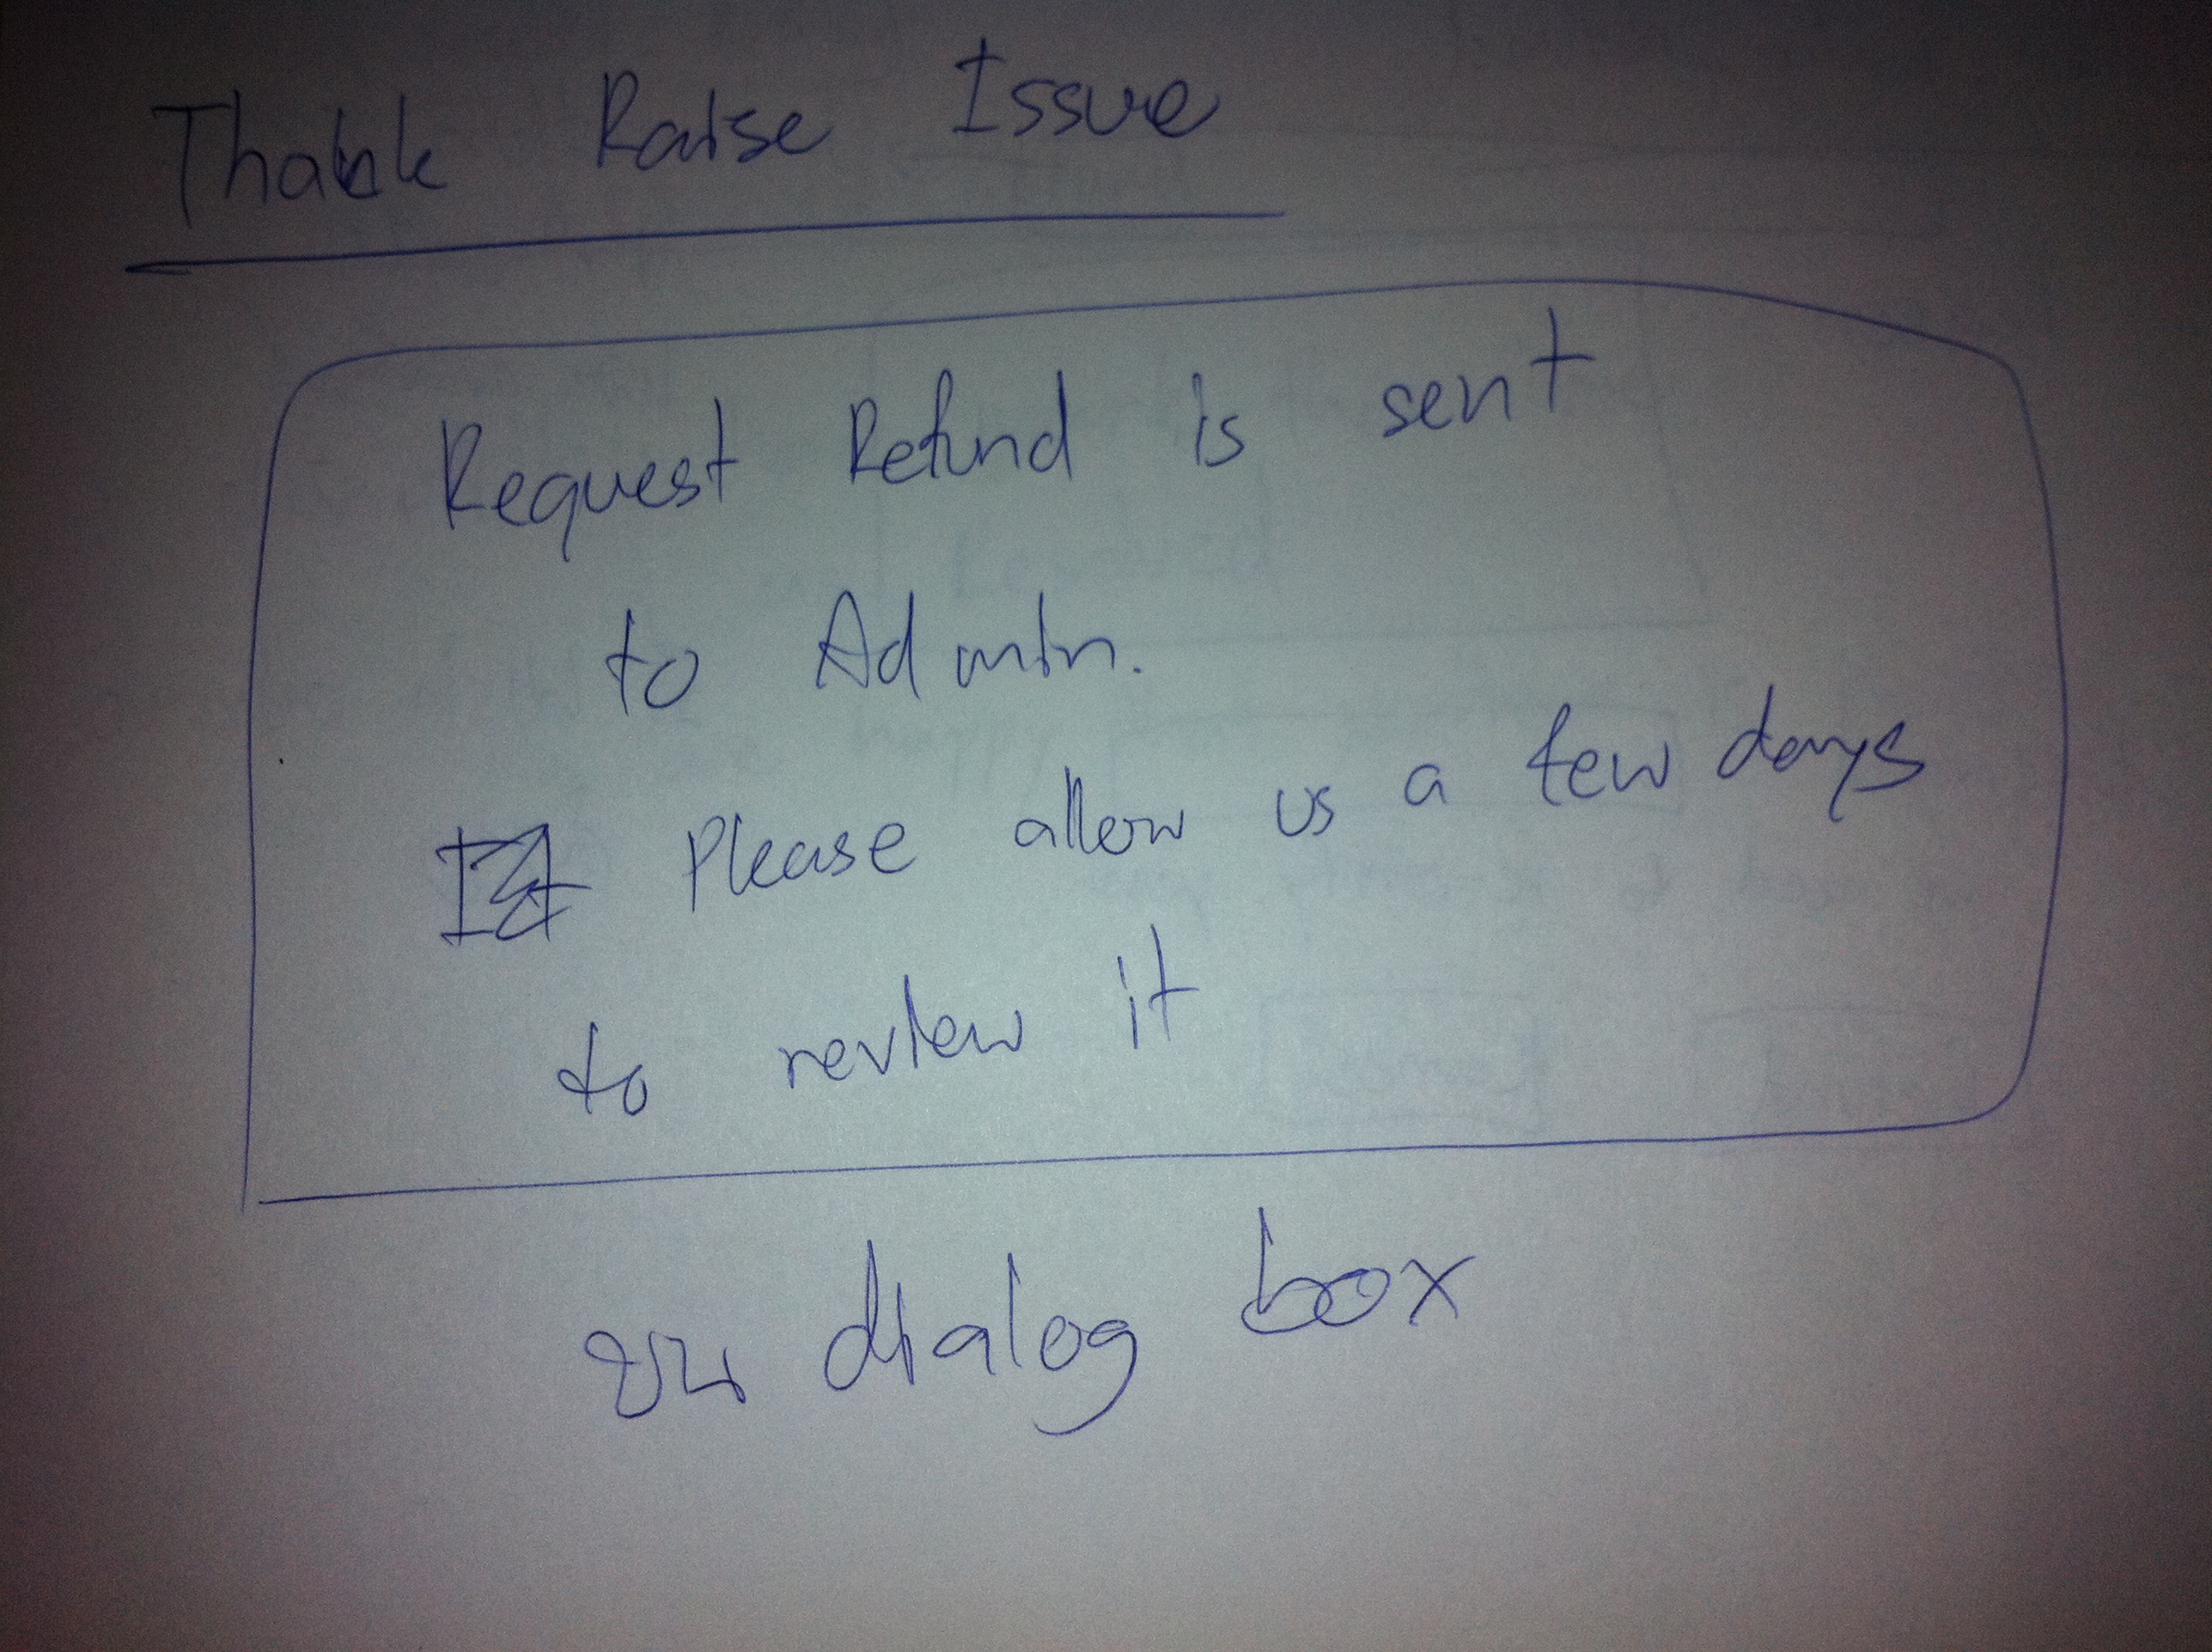 Raise Issue
Request Refund is sent
to Admin.
Please allow us a few days
to review it
dialog box